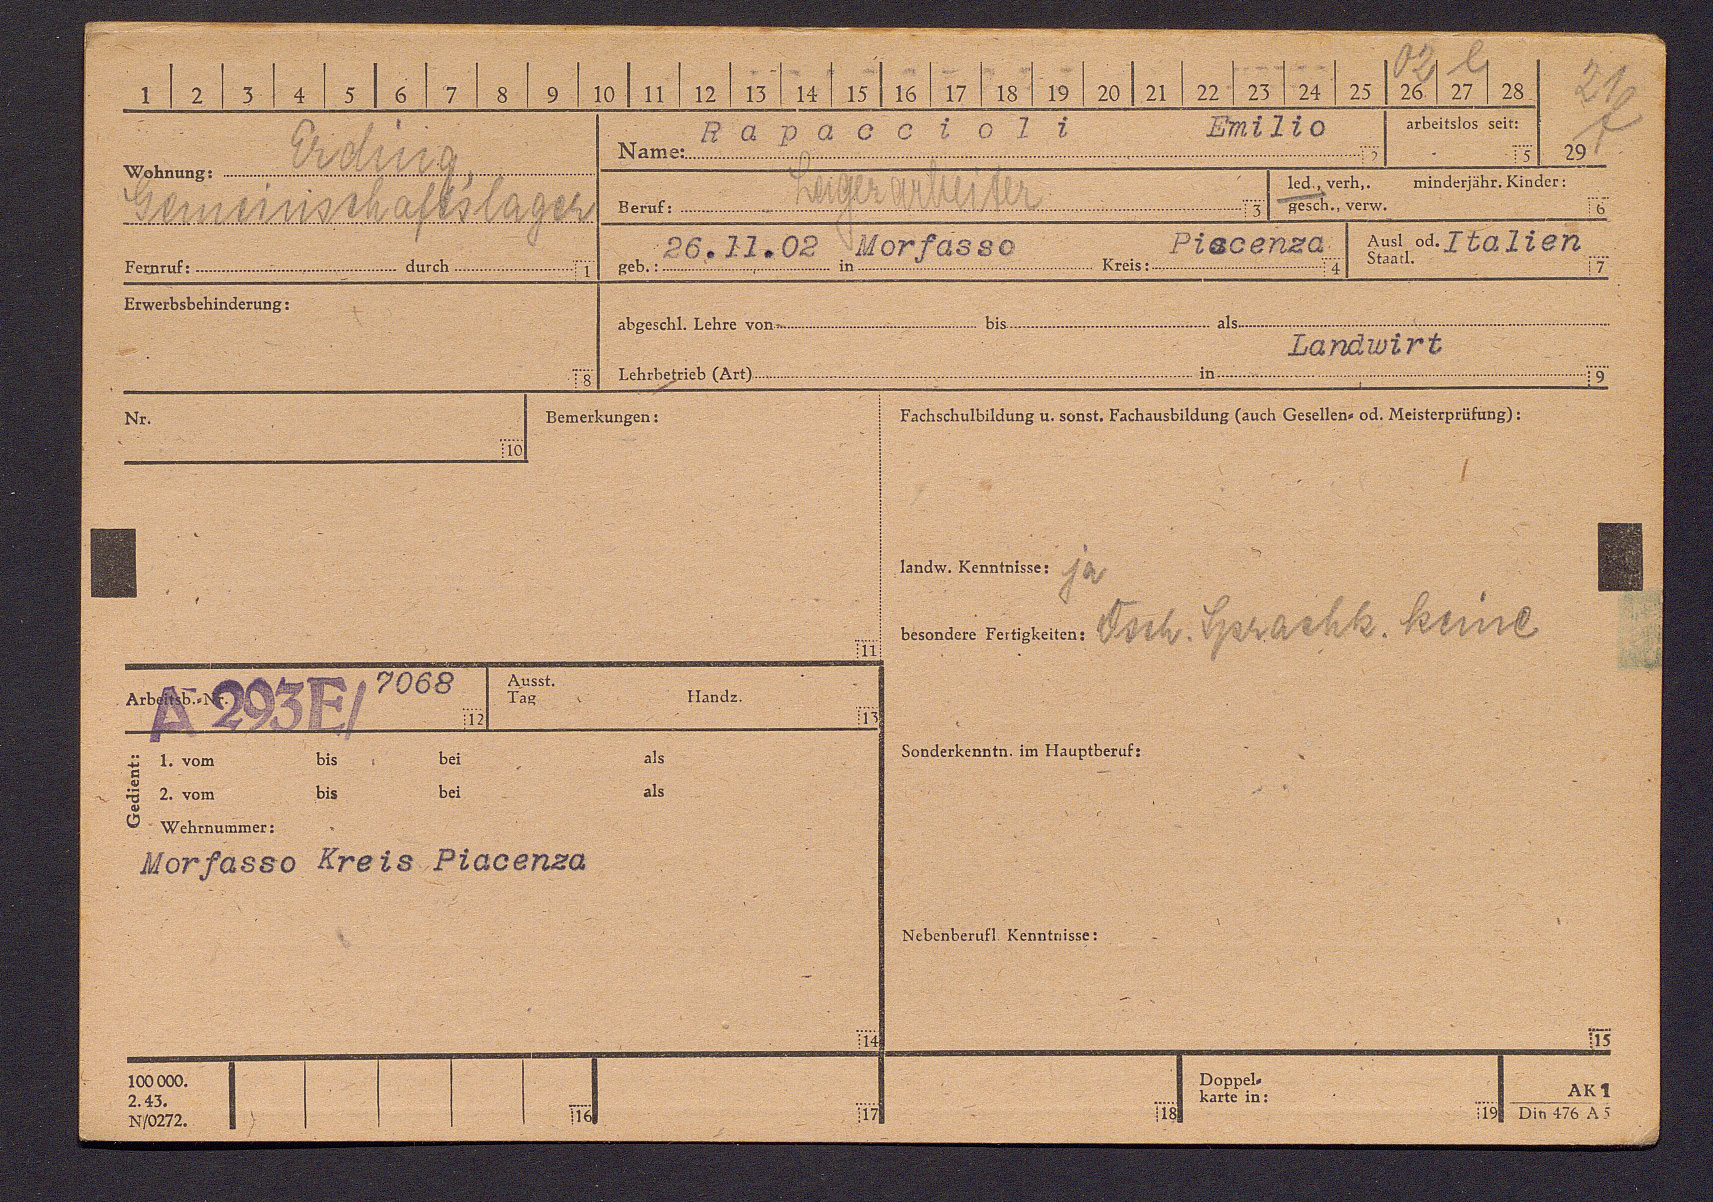 02 l
21
1 2 3 4 5 6 7 8 9 10 11 12 13 14 15 16 17 18 19 20 21 22 23 24 25 26 27 28
29
Wohnung: Erding,
Gemeinschaftslager
Fernruf: durch 1
Name: Rapaccioli Emilio 2
arbeitslos seit: 5
Beruf: Lagerarbeiter 3
led., verh,. minderjähr. Kinder:
gesch., verw. 6
geb.: 26.11.02 in Morfasso Kreis: Piacenza 4
Ausl. od. Italien
Staatl. 7
Erwerbsbehinderung:
8
abgeschl. Lehre von bis als
Landwirt
Lehrbetrieb (Art) in 9
Nr.
10
Bemerkungen:
11
Fachschulbildung u. sonst. Fachausbildung (auch Gesellen- od. Meisterprüfung):
landw. Kenntnisse: ja
besondere Fertigkeiten: Dtsch. Sprachk. keine
Arbeitsb.-Nr. A 293E/ 7068 12
Ausst.
Tag Handz. 13
Gedient:
1. vom bis bei als
2. vom bis bei als
Wehrnummer:
Morfasso Kreis Piacenza
14
Sonderkenntn. im Hauptberuf:
Nebenberufl. Kenntnisse:
15
100 000.
2. 43.
N/0272.
16 17 18
Doppel-
karte in: 19
AK 1
Din 476 A 5